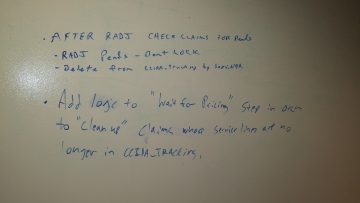 • AFTER RADJ CHECK CLAIMS FOR Pends
- RADJ Pends - Dont LOCK
- Delete from CCIIA_Tracking by
• Add logic to "Wait for Pricing" Step in
to "Clean up" Claims whose service lines are no
longer in CCIIA_TRACKING.